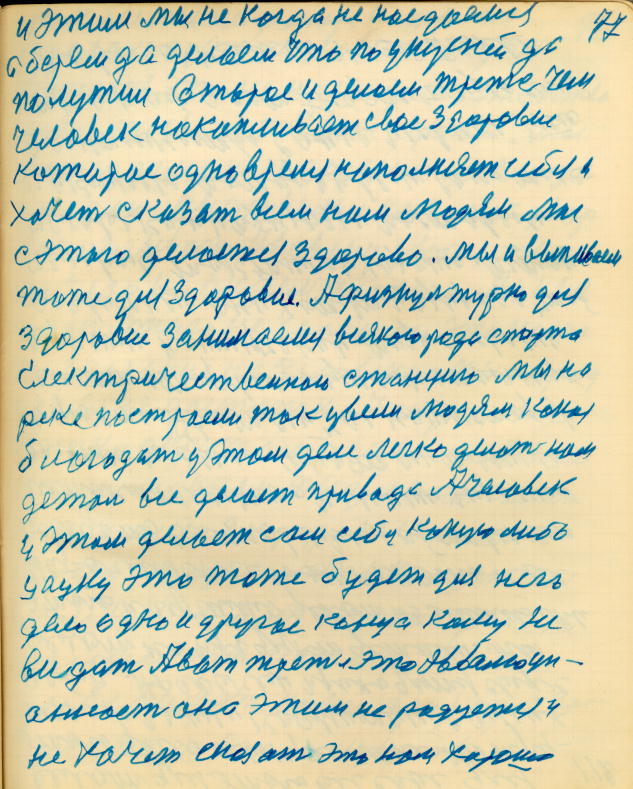 77
и этим мы не когда не наедаемся
а берем да делаем что по вкусней да
получии Второе и делаем третье чем
человек накапливает свое Здоровие
которае одновремя наполняет себя и
хочет сказат всем нам людям мы
с этого делаемся Здорово. мы и выпиваем
тоже для Здоровие. А физкултурно для
Здоровие Занимаемся всякого рода спорта
Електричественною станцию мы на
реке построели ток цвели людям кокая
благодат у этом деле легко делат нам
детал все делает привада А человек
у этом делает сам себя какую либо
науку это тоже будет для него
дело одно и другое конца кому не
видат А вот третя это
она этим не радуется и
не хочет сказат это нам хорошо